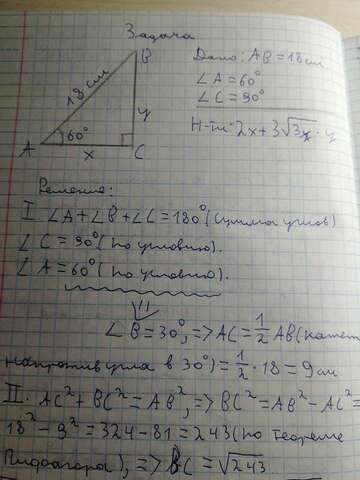 Задача
B
Дано: AB = 18 см
∠A = 60°
∠C = 90°
18 см
y
60°
A
x
C
Н-ти: 2x + 3√3 · y
Решение:
I. ∠A + ∠B + ∠C = 180° (сумма углов)
∠C = 90° (по условию).
∠A = 60° (по условию).
∠B = 30°, => AC = 1/2 AB (катет
напротив угла в 30°) = 1/2 · 18 = 9 см
II. AC² + BC² = AB², => BC² = AB² - AC² =
18² - 9² = 324 - 81 = 243 (по теореме
Пифагора), => BC = √243